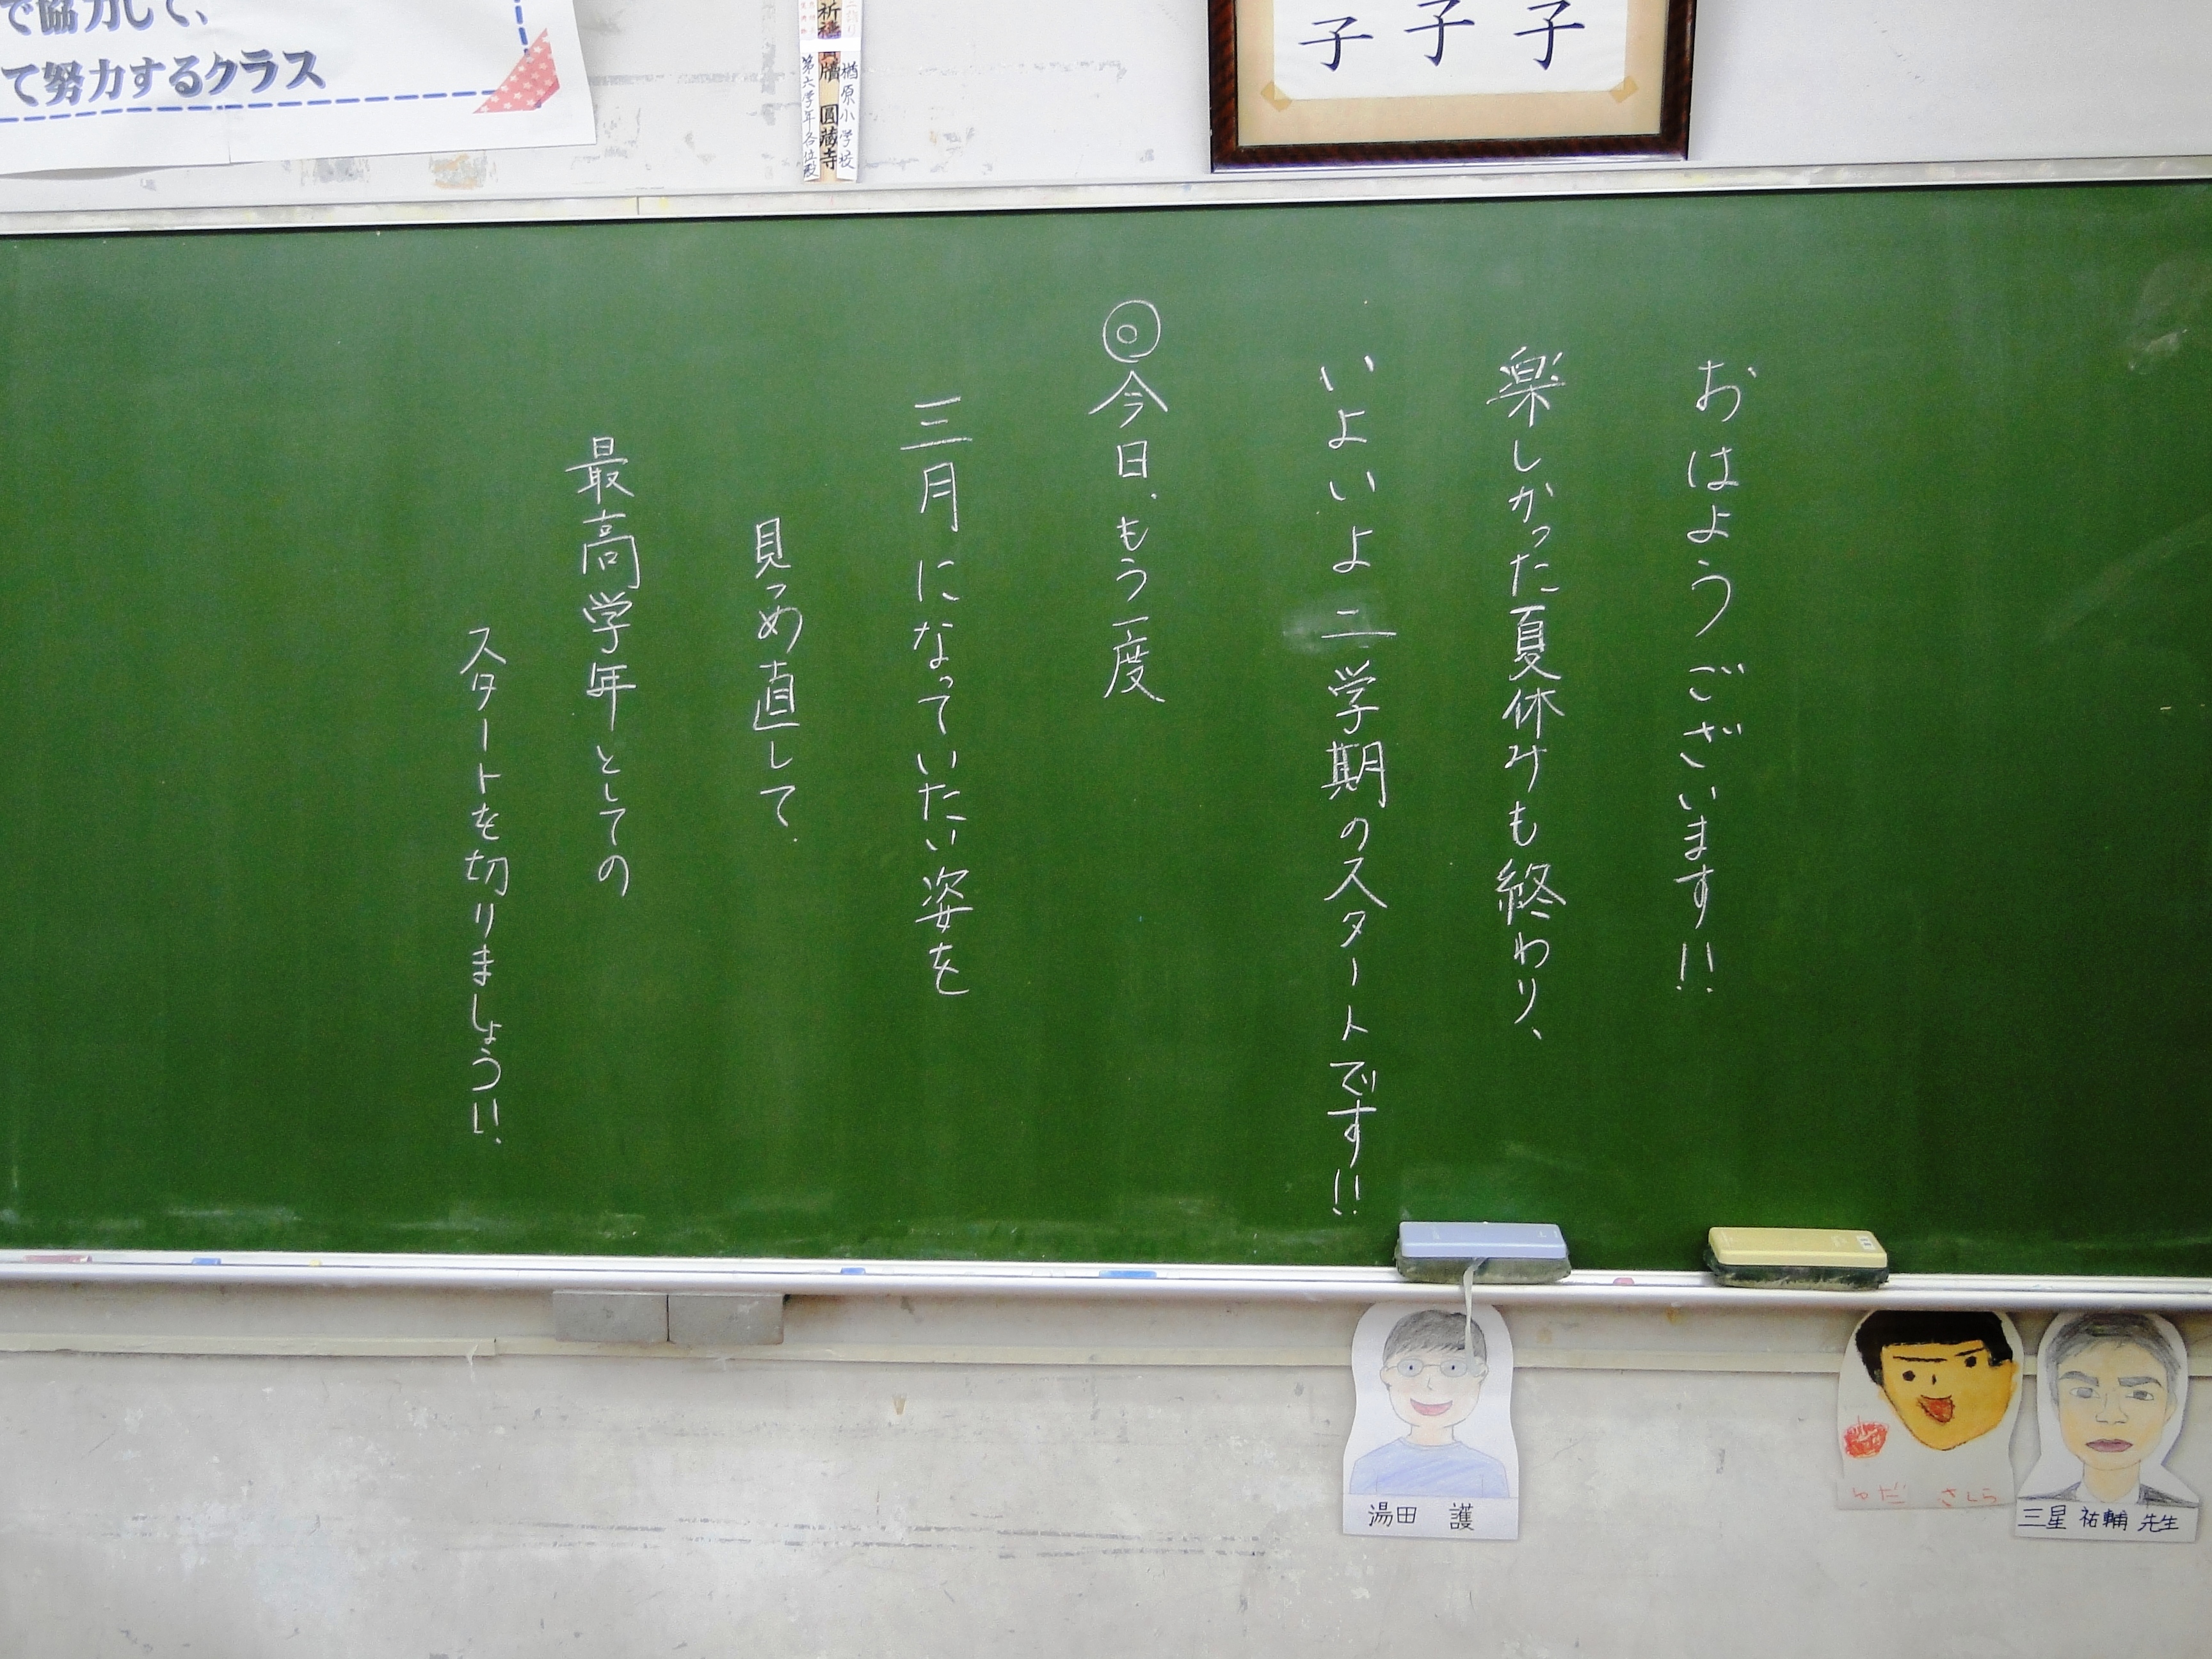 で協力して、
て努力するクラス
祈祷
圓蔵寺
楢原小学校
第六学年各位殿
子 子 子
おはようございます!!
楽しかった夏休みも終わり、
いよいよ二学期のスタートです!!
◎今日、もう一度
三月になっていたい姿を
見つめ直して、
最高学年としての
スタートを切りましょう!!
湯田 護
ゆだ さくら
三星 祐輔 先生